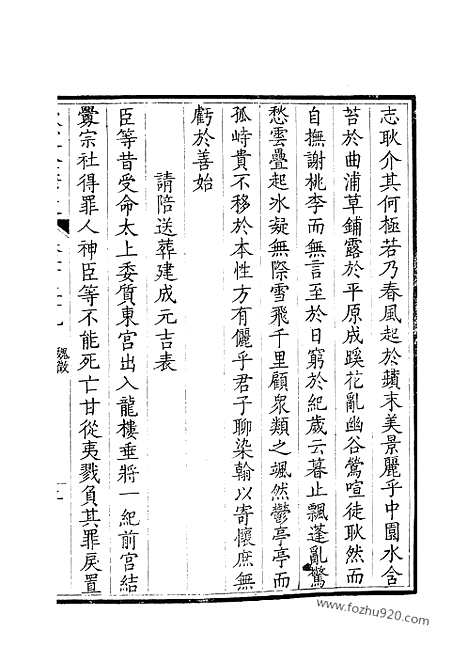 志耿介其何極若乃春風起於蘋末美景麗乎中園水含
苔於曲浦草鋪露於平原成蹊花亂幽谷鶯喧徒耿然而
自撫謝桃李而無言至於日窮於紀歲云暮止飄蓬亂驚
愁雲疊起氷凝無際雪飛千里顧衆類之颯然鬱亭亭而
孤峙貴不移於本性方有儷乎君子聊染翰以寄懷庶無
虧於善始
請陪送葬建成元吉表
臣等昔受命太上委質東宮出入龍樓垂將一紀前宮結
釁宗社得罪人神臣等不能死亡甘從夷戮負其罪戾置
魏徵
www.fozhu920.com